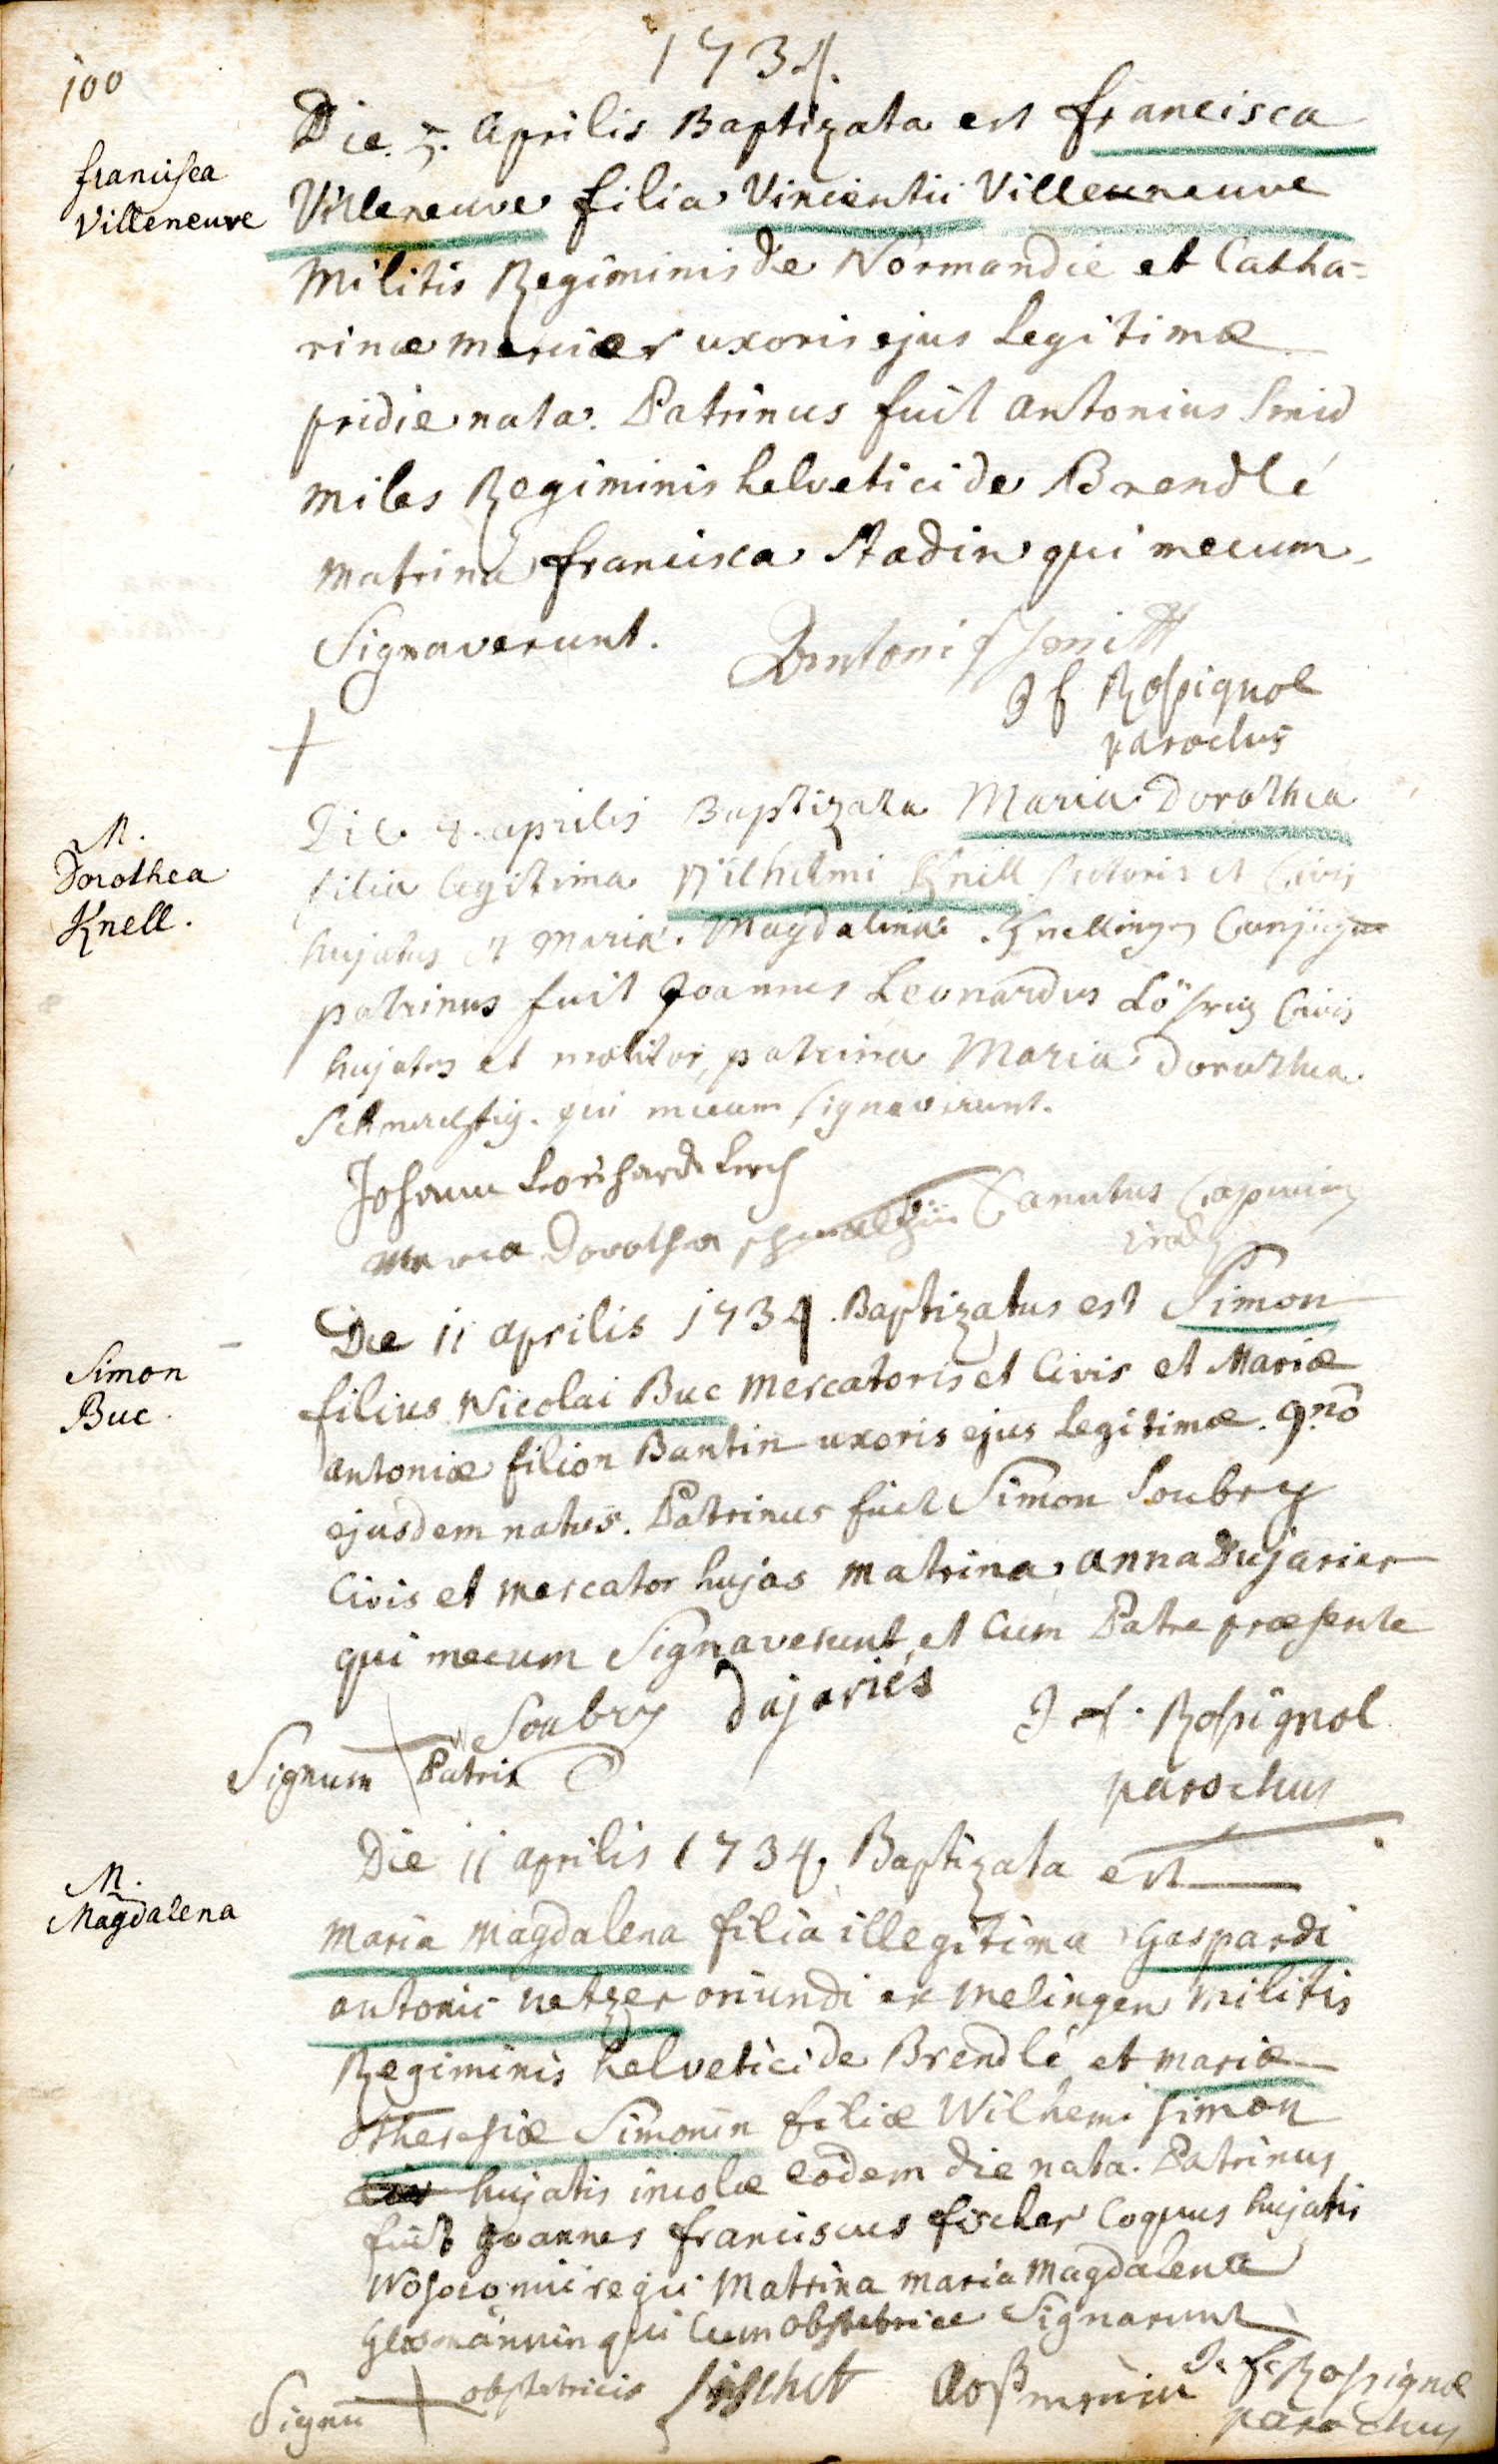 1734.
100
francisca
Villeneuve
Die 5. Aprilis Baptizata est francisca
Villeneuve filia Vincentii Villeneuve
Militis Regiminis de Normandie et Catha=
rinæ Mercier uxoris ejus Legitimæ
pridie nata. Patrinus fuit antonius Smid
miles Regiminis helvetici de Brendlé
matrina francisca Stadin qui mecum
Signaverunt.
Antoni Schmitt
J f Rossignol
parochus
M.
Dorothea
Knell.
Die 8. aprilis Baptizata Maria Dorothea
filia legitima Wilhelmi Knell sutoris et Civis
hujatis et Mariæ Magdalenæ Knellingen Conjugum
patrinus fuit Joannes Leonardus Civis
hujatis et molitor, patrina Maria Dorothea
qui mecum signaverunt.
Johann Leonhard Lerch
Maria Dorothea Canutus Capucin
Simon
Buc.
Die 11 aprilis 1734. Baptizatus est Simon
filius Nicolai Buc Mercatoris et Civis et Mariæ
antoniæ filion Bantin uxoris ejus Legitimæ. 9nô
ejusdem natus. Patrinus fuit Simon Soubry
Civis et Mercator hujas Matrina anna Dujarier
qui mecum Signaverunt et Cum Patre præsente
Soubry Dujariés
J f. Rossignol
parochus
Signum + Patris
M.
Magdalena
Die 11 aprilis 1734. Baptizata est
Maria Magdalena filia illegitima Gaspardi
antonii netzer oriundi ex Melingen Militis
Regiminis helvetici de Brendlé et Mariæ
Theresiæ Simonin filiæ Wilhemi Simon
hujatis incolæ eodem die nata. Patrinus
fuit Joannes franciscus fischer Coquus hujatis
Nosocomii regii Matrina Maria Magdalena
Glosmännin qui Cum obstetrice Signarunt
Signū + obstetricis fischer
J. f. Rossignol
parochus